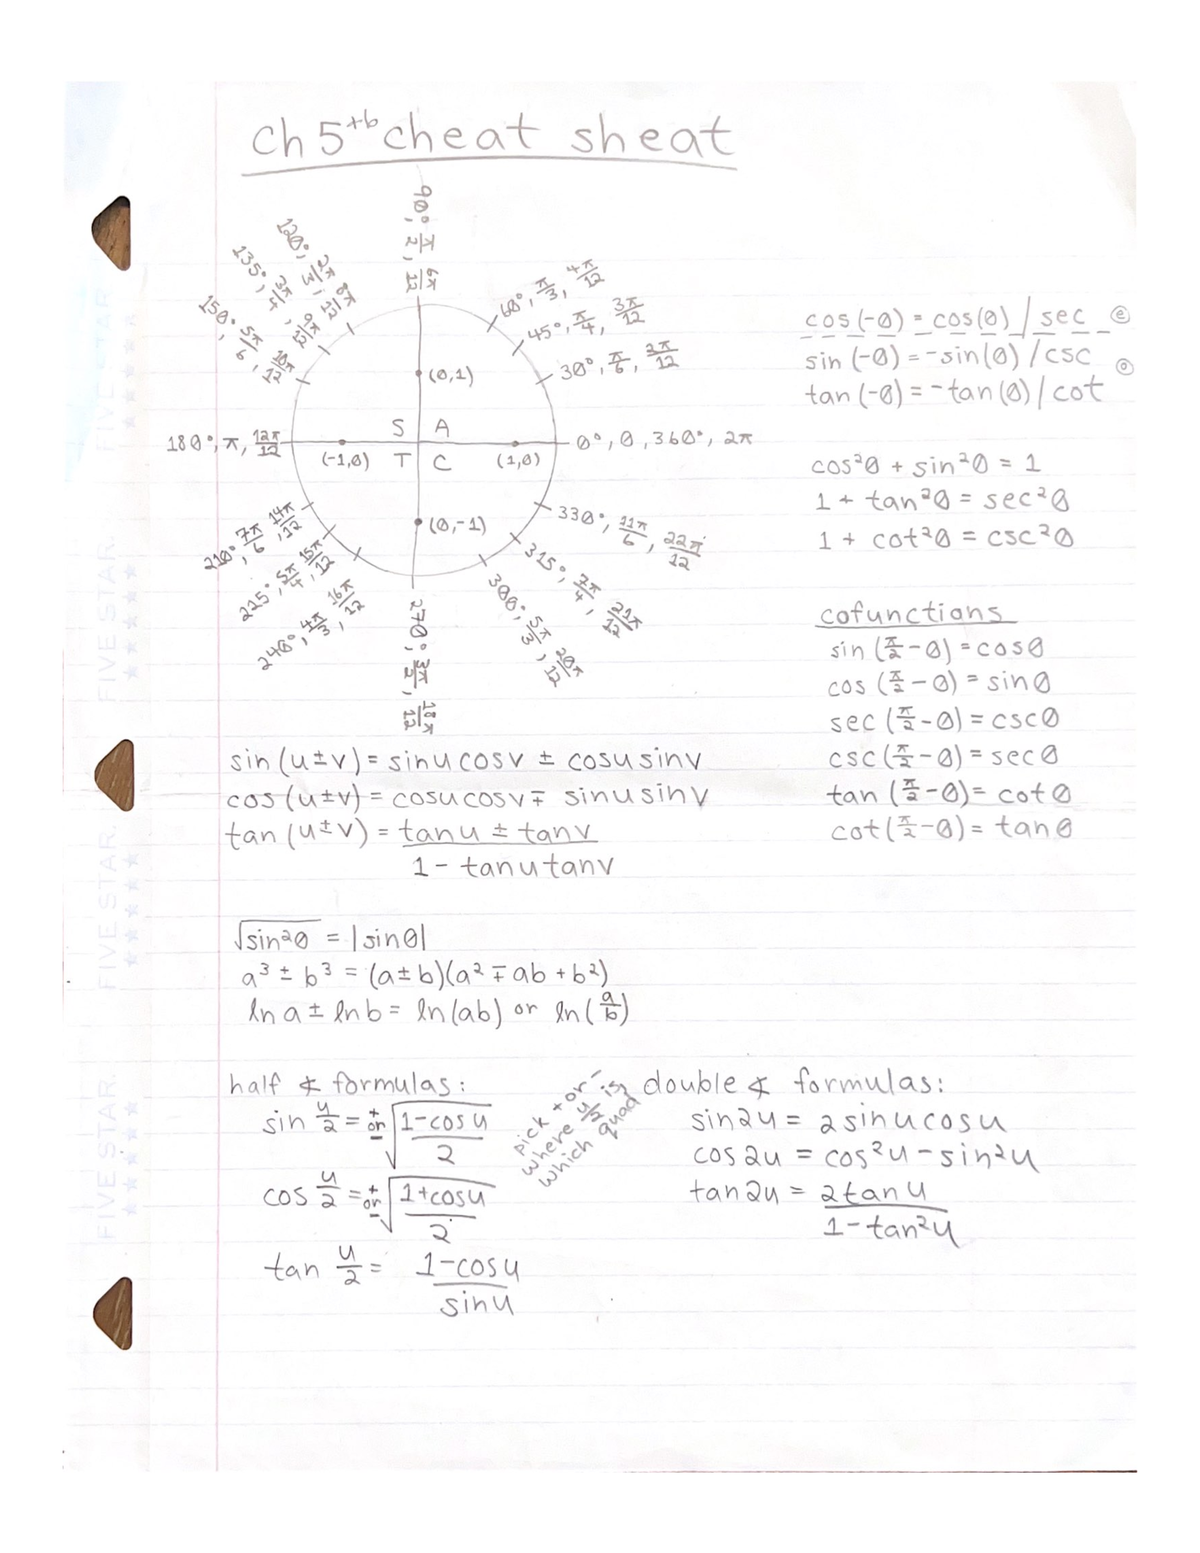 ch 5 +b cheat sheat
90°, π/2, 6π/12
120°, 2π/3, 8π/12
135°, 3π/4, 9π/12
150°, 5π/6, 10π/12
60°, π/3, 4π/12
45°, π/4, 3π/12
30°, π/6, 2π/12
(0,1)
S A
180°, π, 12π/12
0°, 0, 360°, 2π
(-1,0) T C (1,0)
(0,-1)
210°, 7π/6, 14π/12
225°, 5π/4, 15π/12
240°, 4π/3, 16π/12
270°, 3π/2, 18π/12
330°, 11π/6, 22π/12
315°, 7π/4, 21π/12
300°, 5π/3, 20π/12
cos(-θ) = cos(θ) / sec (e)
sin (-θ) = -sin(θ) / csc (o)
tan (-θ) = -tan(θ) / cot
cos²θ + sin²θ = 1
1 + tan²θ = sec²θ
1 + cot²θ = csc²θ
cofunctions
sin (π/2 - θ) = cosθ
cos (π/2 - θ) = sinθ
sec (π/2 - θ) = cscθ
csc (π/2 - θ) = secθ
tan (π/2 - θ) = cotθ
cot (π/2 - θ) = tanθ
sin (u±v) = sinu cosv ± cosu sinv
cos (u±v) = cosu cosv ∓ sinu sinv
tan (u±v) = tanu ± tanv
1 - tanu tanv
√sin²θ = |sinθ|
a³ ± b³ = (a±b)(a² ∓ ab + b²)
ln a ± ln b = ln(ab) or ln(a/b)
half ∡ formulas:
sin u/2 = + or - √1-cos u
2
cos u/2 = + or - √1+cosu
2
tan u/2 = 1-cosu
sinu
pick + or -
where u/2 is,
which quad
double ∡ formulas:
sin2u = 2sinucosu
cos2u = cos²u - sin²u
tan2u = 2tanu
1-tan²u
FIVE STAR
FIVE STAR.
FIVE STAR.
FIVE STAR.